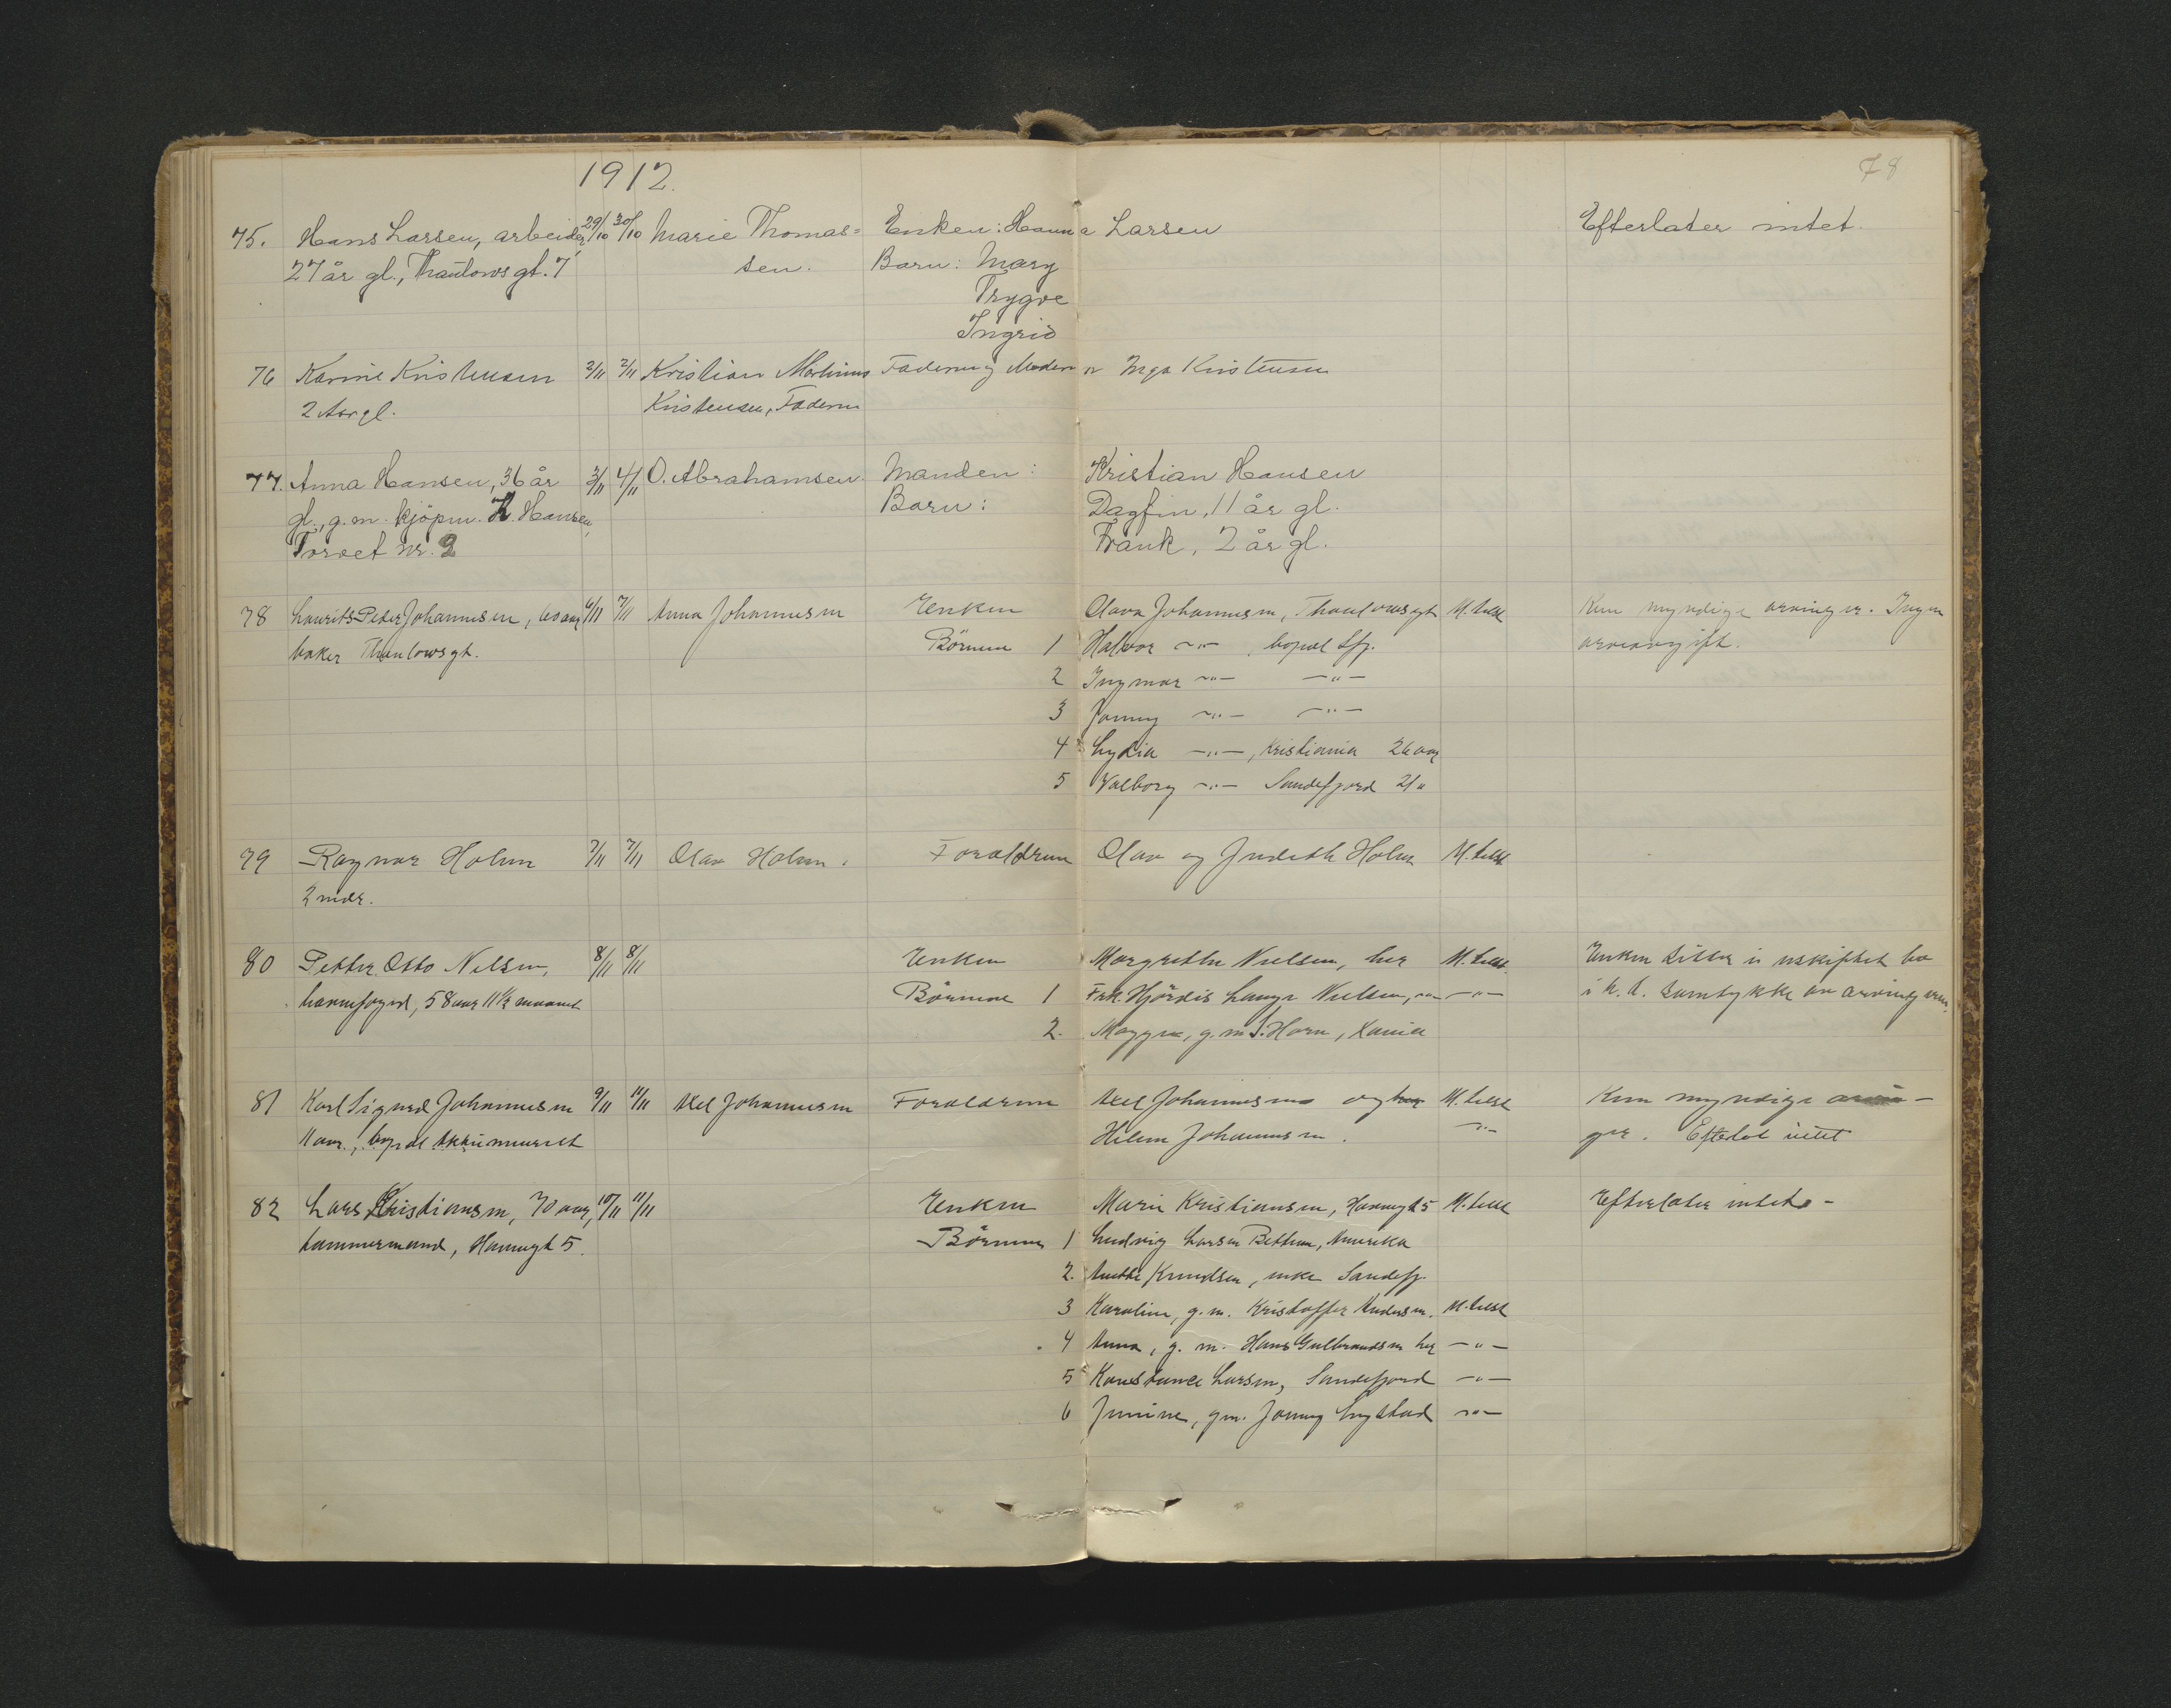 1912.
78
75. Hans Larsen, arbeider 29/10 30/10 Marie Thomas= Enken: Hanna Larsen Efterlater intet.
27 år gl., Thaulows gt. 7 sen. Barn: Mary
Trygve
Ingrid
76 Karine Kristensen 2/11 2/11 Kristian Martinius Faderen og Moderen Inga Kristensen
2 Aar gl. Kristensen, Faderen
77. Anna Hansen, 36 år 3/11 4/11 O. Abrahamsen. Manden: Kristian Hansen
gl., g. m. kjöpm. K. Hansen, Barn: Dagfin, 11 år gl.
Torvet nr. 2 Frank, 2 år gl.
78 Laurits Peder Johannesen, 60 aar 6/11 7/11 Anna Johannesen Enken Olava Johannesen, Thaulowsgt M. tilst Kun myndige arvinger. Ingen
baker Thaulowsgt. Börnene 1 Halvor -"- , bopæl Sfj. arveavgift.
2 Ingmar -"- -"-
3 Jenny -"- -"-
4 Lydia -"-, Kristiania 26 aar
5 Valborg -"- Sandefjord 21 "
79 Ragnar Holm 7/11 7/11 Olav Holm. Forældrene Olav og Judith Holm M. tilst
2 mdr.
80 Petter Otto Nilsen, 8/11 8/11 Enken Margrethe Nielsen, her M. tilst. Enken sitter i uskiftet bo
havnefoged, 58 aar 11 1/2 maaned Börnene 1 Frk. Hjördis Lange Nielsen, -"- -"- i h. t. samtykke av arvingerne.
2. Magga, g. m. S. Horn, Xania
81 Karl Sigurd Johannesen 9/11 11/11 Axel Johannesen Forældrene Axel Johannesen og M. tilst Kun myndige arvin-
11 aar., bopæl Helene Johannesen. -"- ger. Efterlot intet
82 Lars Kristiansen, 70 aar, 10/11 11/11 Enken Marie Kristiansen, Havnegt 5 M. tilst Efterlater intet. -
tømmermand, Havnegt 5. Börnene 1 Ludvig Larsen , Amerika
2. Anette Knudsen, enke Sandefj.
3 Karoline, g. m. Kristoffer Andersen. M. tilst
4 Anna, g. m. Hans Gulbrandsen her -"-
5 Konstance Larsen, Sandefjord -"-
6 Jenine, gm. Jonny -"-